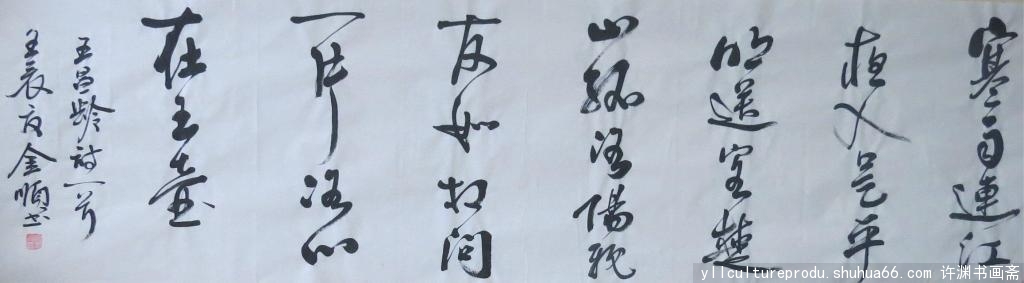 寒雨連江
夜入吴平
明送客楚
山孤洛陽親
友如相問
一片冰心
在玉壶
王昌龄诗一首
壬辰夏金順书
yllcultureprodu.shuhua66.com 许渊书画斋